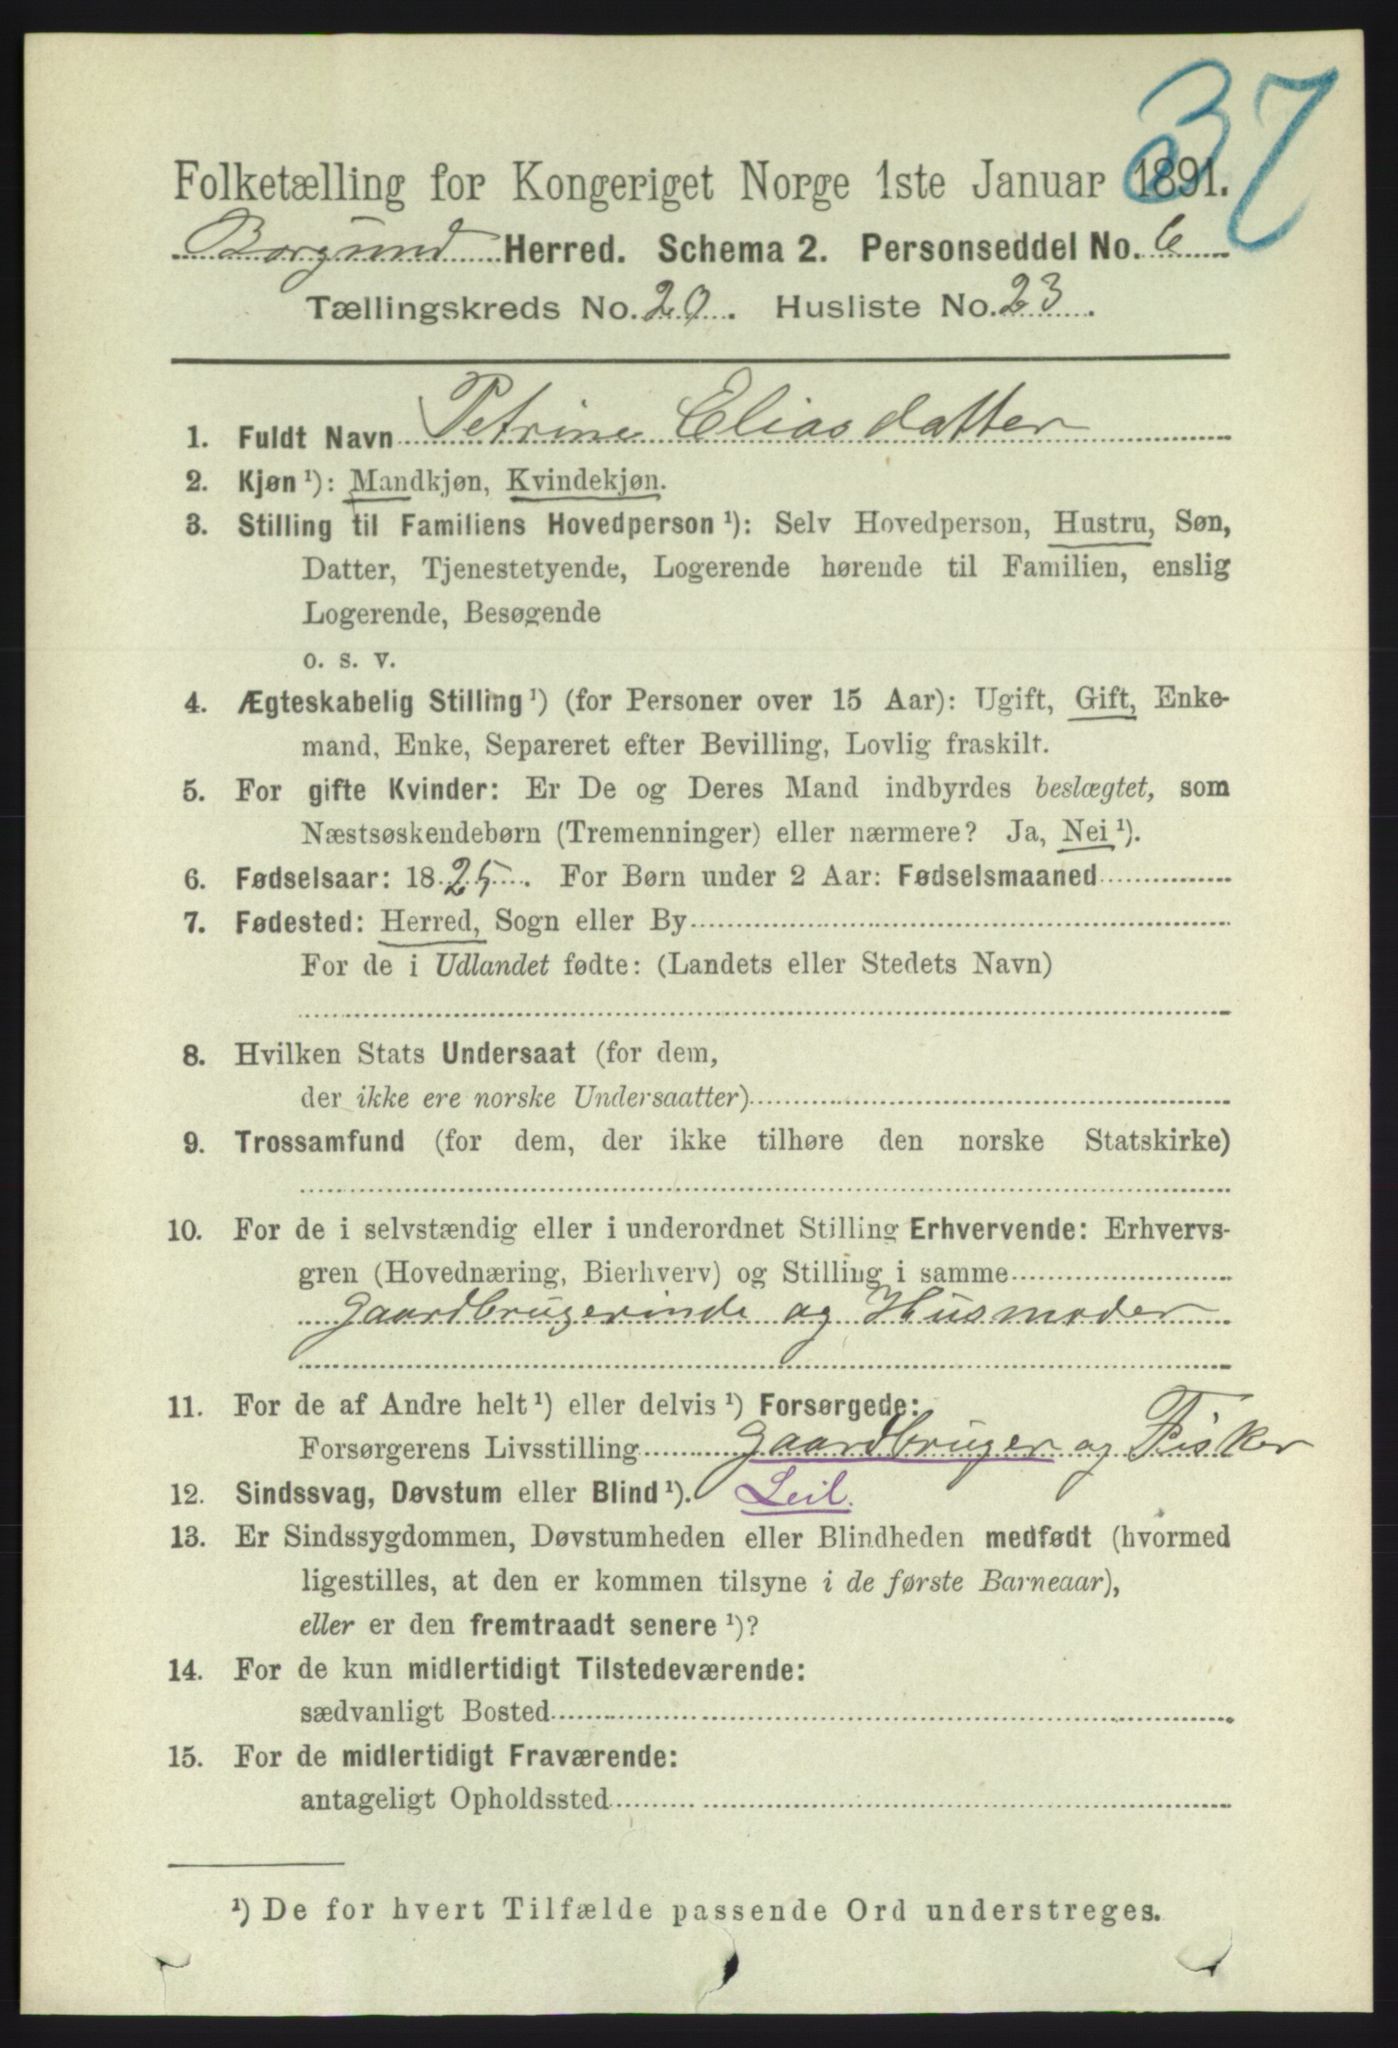 37
Folketælling for Kongeriget Norge 1ste Januar 1891.
Borgund Herred. Schema 2. Personseddel No. 6
Tællingskreds No. 20. Husliste No. 23.
1. Fuldt Navn Petrine Eliasdatter
2. Kjøn ¹): Mandkjøn, Kvindekjøn.
3. Stilling til Familiens Hovedperson ¹): Selv Hovedperson, Hustru, Søn,
Datter, Tjenestetyende, Logerende hørende til Familien, enslig
Logerende, Besøgende
o. s. v.
4. Ægteskabelig Stilling ¹) (for Personer over 15 Aar): Ugift, Gift, Enke-
mand, Enke, Separeret efter Bevilling, Lovlig fraskilt.
5. For gifte Kvinder: Er De og Deres Mand indbyrdes beslægtet, som
Næstsøskendebørn (Tremenninger) eller nærmere? Ja, Nei ¹).
6. Fødselsaar: 1825. For Børn under 2 Aar: Fødselsmaaned
7. Fødested: Herred, Sogn eller By
For de i Udlandet fødte: (Landets eller Stedets Navn)
8. Hvilken Stats Undersaat (for dem,
der ikke ere norske Undersaatter)
9. Trossamfund (for dem, der ikke tilhøre den norske Statskirke)
10. For de i selvstændig eller i underordnet Stilling Erhvervende: Erhvervs-
gren (Hovednæring, Bierhverv) og Stilling i samme
Gaardbrugerinde og Husmoder
11. For de af Andre helt ¹) eller delvis ¹) Forsørgede:
Forsørgerens Livsstilling Gaardbruger og Fisker
12. Sindssvag, Døvstum eller Blind ¹). Leil.
13. Er Sindssygdommen, Døvstumheden eller Blindheden medfødt (hvormed
ligestilles, at den er kommen tilsyne i de første Barneaar),
eller er den fremtraadt senere ¹)?
14. For de kun midlertidigt Tilstedeværende:
sædvanligt Bosted
15. For de midlertidigt Fraværende:
antageligt Opholdssted
¹) De for hvert Tilfælde passende Ord understreges.